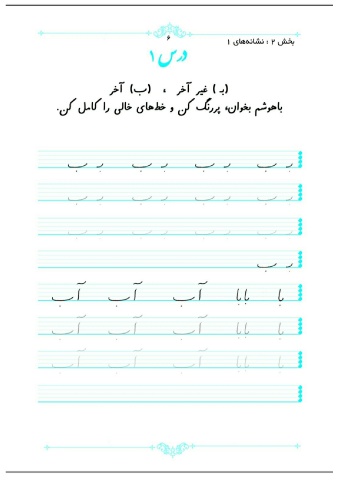 ۶
بخش ۲ : نشانه‌های ۱
درس ۱
(بـ ) غیر آخر ، (ب) آخر
باهوشم بخوان، پررنگ کن و خط‌های خالی را کامل کن.
بـ ب بـ ب بـ ب بـ ب
بـ ب بـ ب بـ ب بـ ب
بـ ب بـ ب بـ ب بـ ب
بـ ب
با بابا آب آب آب
با بابا آب آب آب
با بابا آب آب آب